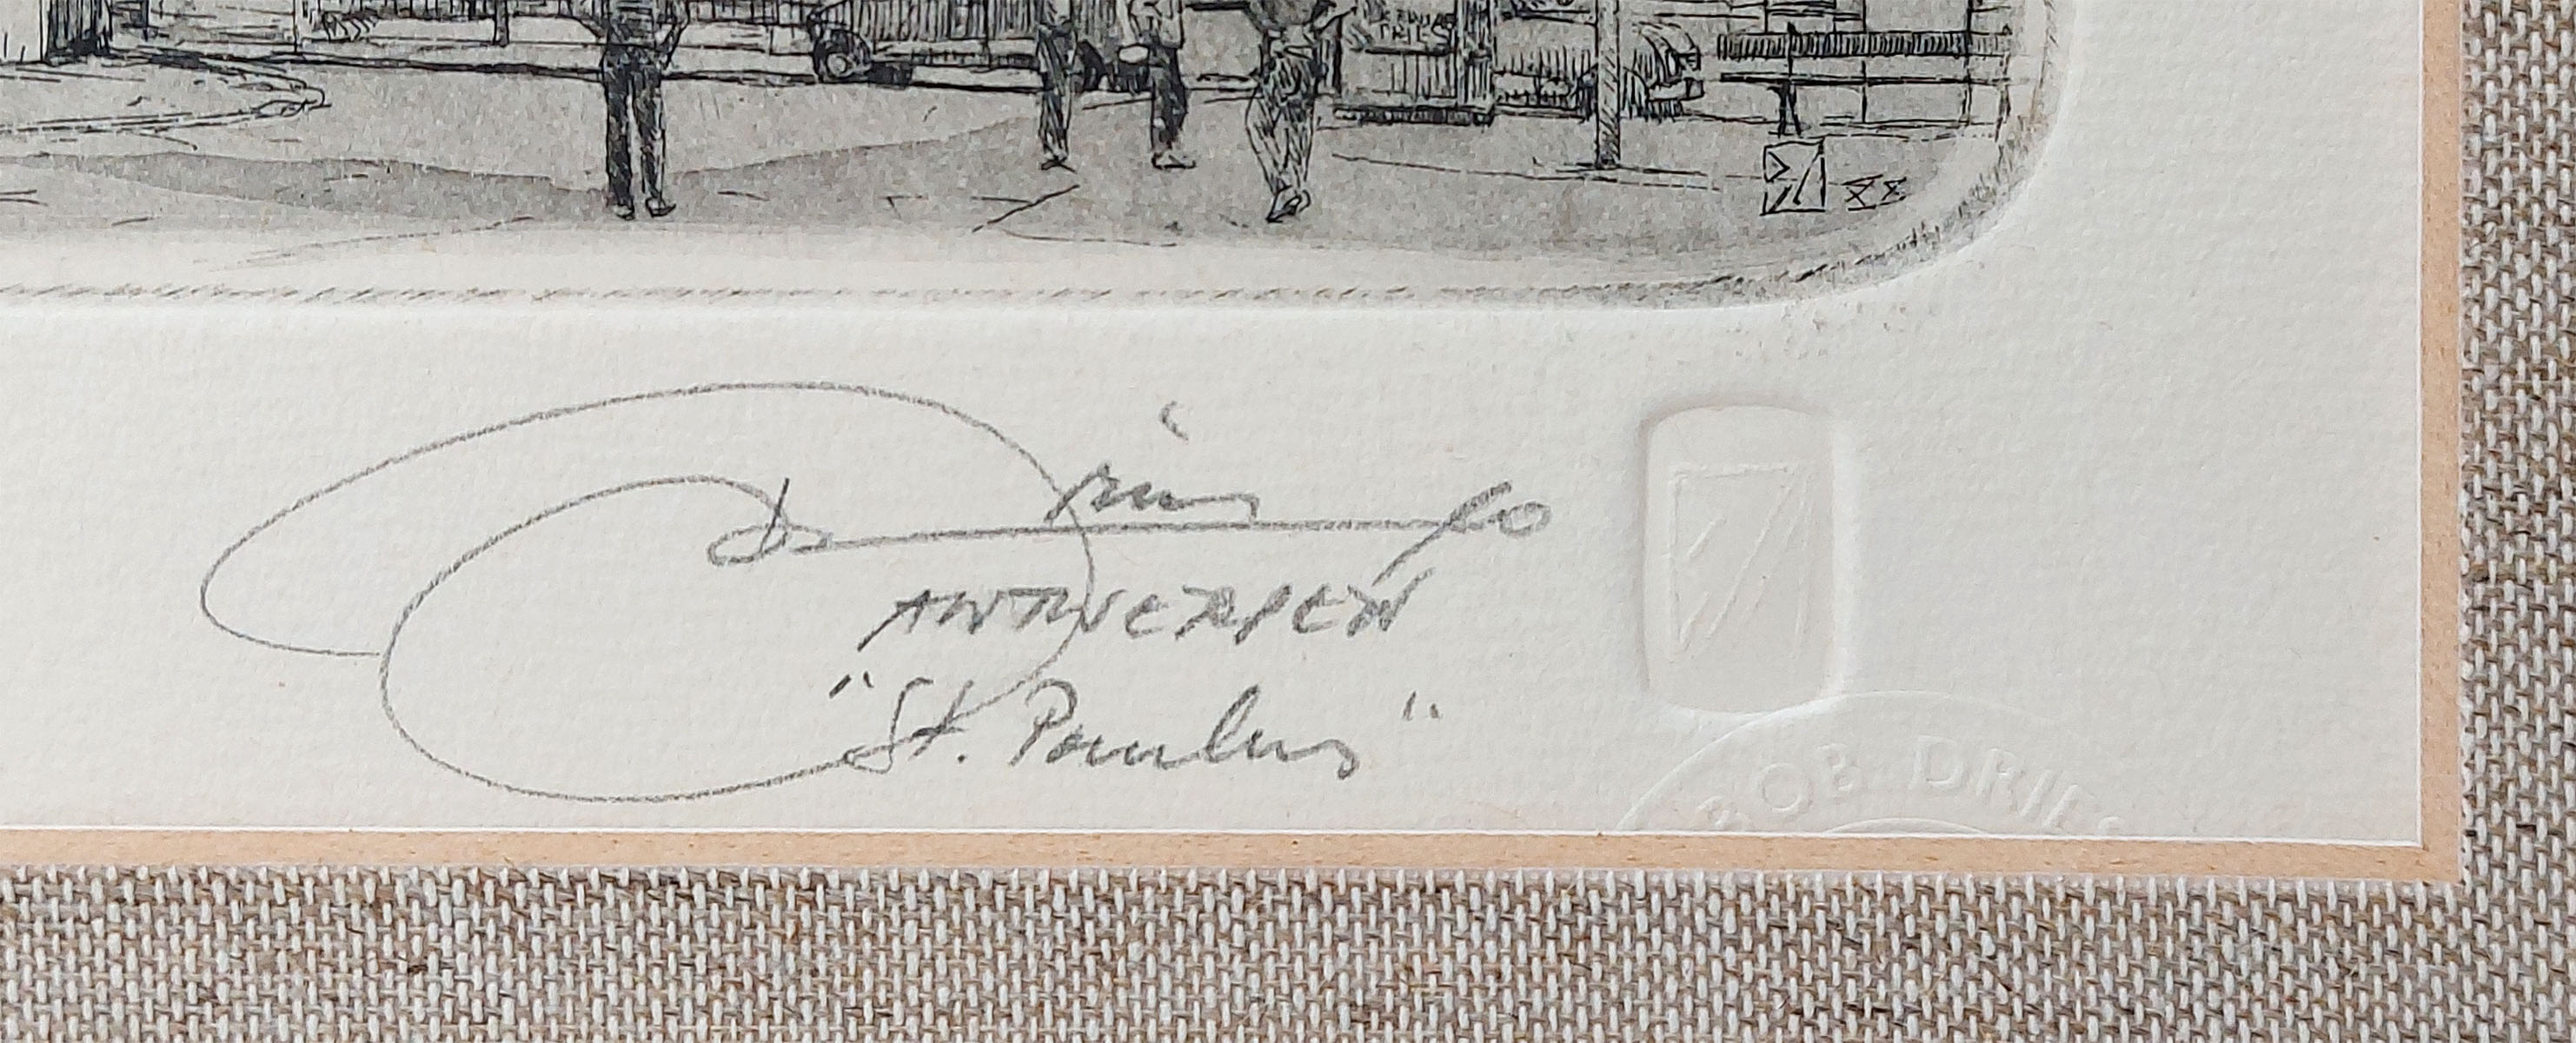 TRIES
Dries
ANTWERPEN
"St. Paulus"
BOB DRIES